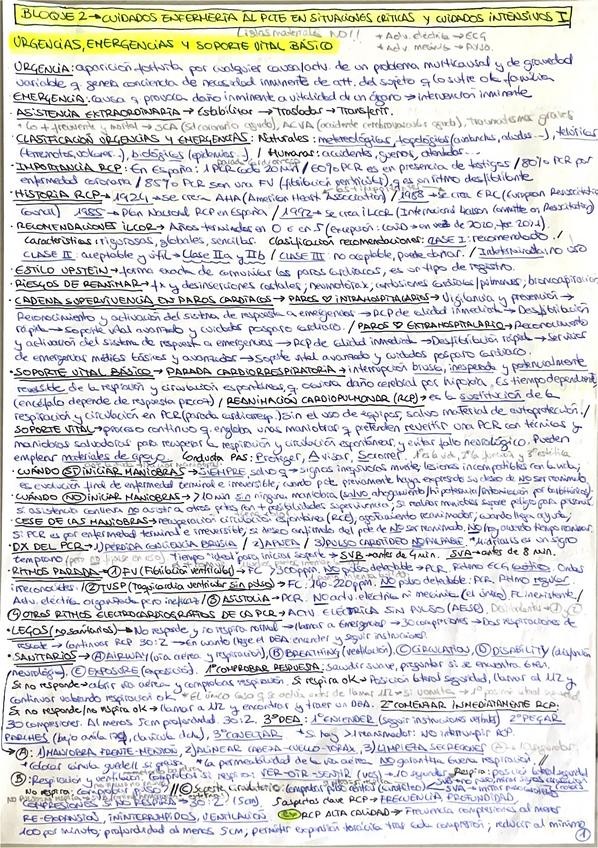 BLOQUE 2 → CUIDADOS ENFERMERÍA AL PCTE EN SITUACIONES CRÍTICAS Y CUIDADOS INTENSIVOS I
URGENCIAS, EMERGENCIAS Y SOPORTE VITAL BÁSICO
* Adv. eléctrica → ECG
URGENCIA: aparición fortuita por cualquier causa/adv. de un problema multicausal y de gravedad
variable q genera conciencia de necesidad inminente de att. del sujeto q lo sufre o la familia
EMERGENCIA: causa q provoca daño inminente a vitalidad de un órgano → intervención inminente
· ASISTENCIA EXTRAORDINARIA → Estabilizar → Trasladar → Transferir.
* Lo + frecuente y mortal → SCA, ACVA (accidente cerebrovascular agudo), traumatismos graves
· CLASIFICACIÓN URGENCIAS Y EMERGENCIAS: Naturales: meteorológicas, topológicas (avalanchas, aludes...), telúricas
(terremotos, volcanes..), biológicas (epidemias..) / Humanas: accidentes, guerras, atentados...
· IMPORTANCIA RCP: En España: 1 PCR cada 20 min / 60% PCR es en presencia de testigos / 80% PCR por
enfermedad coronaria / 85% PCR son una FV (fibrilación ventricular), q es un ritmo desfibrilable.
· HISTORIA RCP → 1924 → se crea AHA (American Heart Association) / 1988 → se crea ERC (European Resuscitation
Council) 1985 → Plan Nacional RCP en España / 1992 → se crea ILCOR
· RECOMENDACIONES ILCOR → Años terminados en 0 o en 5 (excepción: COVID → en vez de 2020, fue 2021).
Características: rigurosas, globales, sencillas. Clasificación recomendaciones: CLASE I: recomendado. /
CLASE II: aceptable y útil → Clase IIa y IIb / CLASE III: no aceptable, puede dañar. / Indeterminada: no uso
· ESTILO UPSTEIN → forma exacta de comunicar los paros cardíacos, es un tipo de registro.
· RIESGOS DE REANIMAR → fx y desinserciones costales; neumotórax; contusiones cardíacas/pulmones; broncoaspiración
· CADENA SUPERVIVENCIA EN PAROS CARDÍACOS → PAROS ♡ INTRAHOSPITALARIOS → Vigilancia y prevención →
Reconocimiento y activación del sistema de respuesta a emergencias → RCP de calidad inmediata → Desfibrilación
rápida → Soporte vital avanzado y cuidados posparo cardíaco. / PAROS ♡ EXTRAHOSPITALARIO → Reconocimiento
y activación del sistema de respuesta a emergencias → RCP de calidad inmediata → Desfibrilación rápida → Servicios
de emergencias médicas básicas y avanzadas → Soporte vital avanzado y cuidados posparo cardíaco.
· SOPORTE VITAL BÁSICO → PARADA CARDIORRESPIRATORIA → interrupción brusca, inesperada y potencialmente
reversible de la respiración y circulación espontánea, q ocasiona daño cerebral por hipoxia. Es tiempo dependiente
(encéfalo depende de respuesta precoz) / REANIMACIÓN CARDIOPULMONAR (RCP) → es la sustitución de la
respiración y circulación en PCR (parada cardiorresp.) sin el uso de equipos, salvo material de autoprotección. /
SOPORTE VITAL → proceso continuo q engloba unas maniobras q pretenden revertir una PCR con técnicas y
maniobras salvadoras para recuperar la respiración y circulación espontánea, y evitar fallo neurológico. Pueden
emplear materiales de apoyo. Conducta PAS: Proteger, Avisar, Socorrer.
· CUÁNDO SÍ INICIAR MANIOBRAS → SIEMPRE, salvo q → signos inequívocos muerte, lesiones incompatibles con la vida,
es evolución final de enfermedad terminal e irreversible, cuando pcte previamente haya expresado su deseo de NO ser reanimado.
· CUÁNDO NO INICIAR MANIOBRAS → >10 min sin ninguna maniobra (salvo ahogamiento/hipotermia/intoxicación por barbitúricos)
si asistencia conlleva no asistir a otros pctes con + posibilidades supervivencia
· CESE DE LAS MANIOBRAS → recuperación circulación espontánea (RCE), agotamiento reanimador
si PCR es por enfermedad terminal e irreversible; si deseo confirmado del pcte de NO ser reanimado
· DX DEL PCR → 1) PÉRDIDA CONCIENCIA BRUSCA / 2) APNEA / 3) PULSO CAROTÍDEO NO PALPABLE.
Tiempo ideal para iniciar soporte → SVB → antes de 4 min. SVA → antes de 8 min.
· RITMOS PARADA → ① FV (Fibrilación ventricular) → FC >300 ppm. NO pulso detectable: PCR. Ritmo ECG caótico. Ondas
irreconocibles / ② TVSP (Taquicardia ventricular sin pulso) → FC: 140-220 ppm. NO pulso detectable: PCR. Ritmo regular.
Adv. eléctrica organizada pero ineficaz / ③ ASISTOLIA → PCR. NO activ. eléctrica ni mecánica (el único) FC inexistente /
④ OTROS RITMOS ELECTROCARDIOGRÁFICOS DE LA PCR → ACTV. ELÉCTRICA SIN PULSO (AESP).
· LEGOS (no sanitarios) → No responde y no respira normal → llamar a emergencias → 30 compresiones → Dos respiraciones de
rescate → Continuar RCP 30:2 → En cuanto llegue el DEA encender y seguir instrucciones.
· SANITARIOS → Ⓐ AIRWAY (vía aérea y respiración), Ⓑ BREATHING (ventilación), Ⓒ CIRCULATION, Ⓓ DISABILITY
neurológico), Ⓔ EXPOSURE (exposición). 1º COMPROBAR RESPUESTA: sacudir suave, preguntar si se encuentra bien.
Si no responde → abrir vía aérea y comprobar respiración. Si respira ok → Posición lateral seguridad, llamar al 112 y
continuar valorando respiración ok
Si no responde/no respira ok → llamar a 112 y encontrar y traer un DEA. 2º COMENZAR INMEDIATAMENTE RCP:
30 compresiones. Al menos 5 cm profundidad. 30:2. 3º DEA: 1º ENCENDER (seguir instrucciones verbales) 2º PEGAR
PARCHES (bajo axila izq, clavícula dcha), 3º CONECTAR * Si hay >1 reanimador: NO interrumpir RCP.
→ Ⓐ: 1) MANIOBRA FRENTE-MENTÓN 2) ALINEAR CABEZA-CUELLO-TÓRAX, 3) LIMPIEZA SECRECIONES
* Colocar cánula guedell si precisa * La permeabilidad de la vía aérea NO garantiza buena respiración.
Ⓑ: Respiración y ventilación. Comprobar si respira: VER-OIR-SENTIR → 10 segundos. Respira: posición lateral seguridad
No respira: / Ⓒ: Soporte circulatorio: comprobar pulso carotídeo
COMPRESIONES 30:2 (5cm). 5 aspectos clave RCP → FRECUENCIA, PROFUNDIDAD,
RE-EXPANSIÓN, ININTERRUMPIDOS, VENTILACIÓN RCP ALTA CALIDAD → Frecuencia compresiones al menos
100 por minuto; profundidad al menos 5cm; permitir expansión torácica tras cada compresión; reducir al mínimo
①